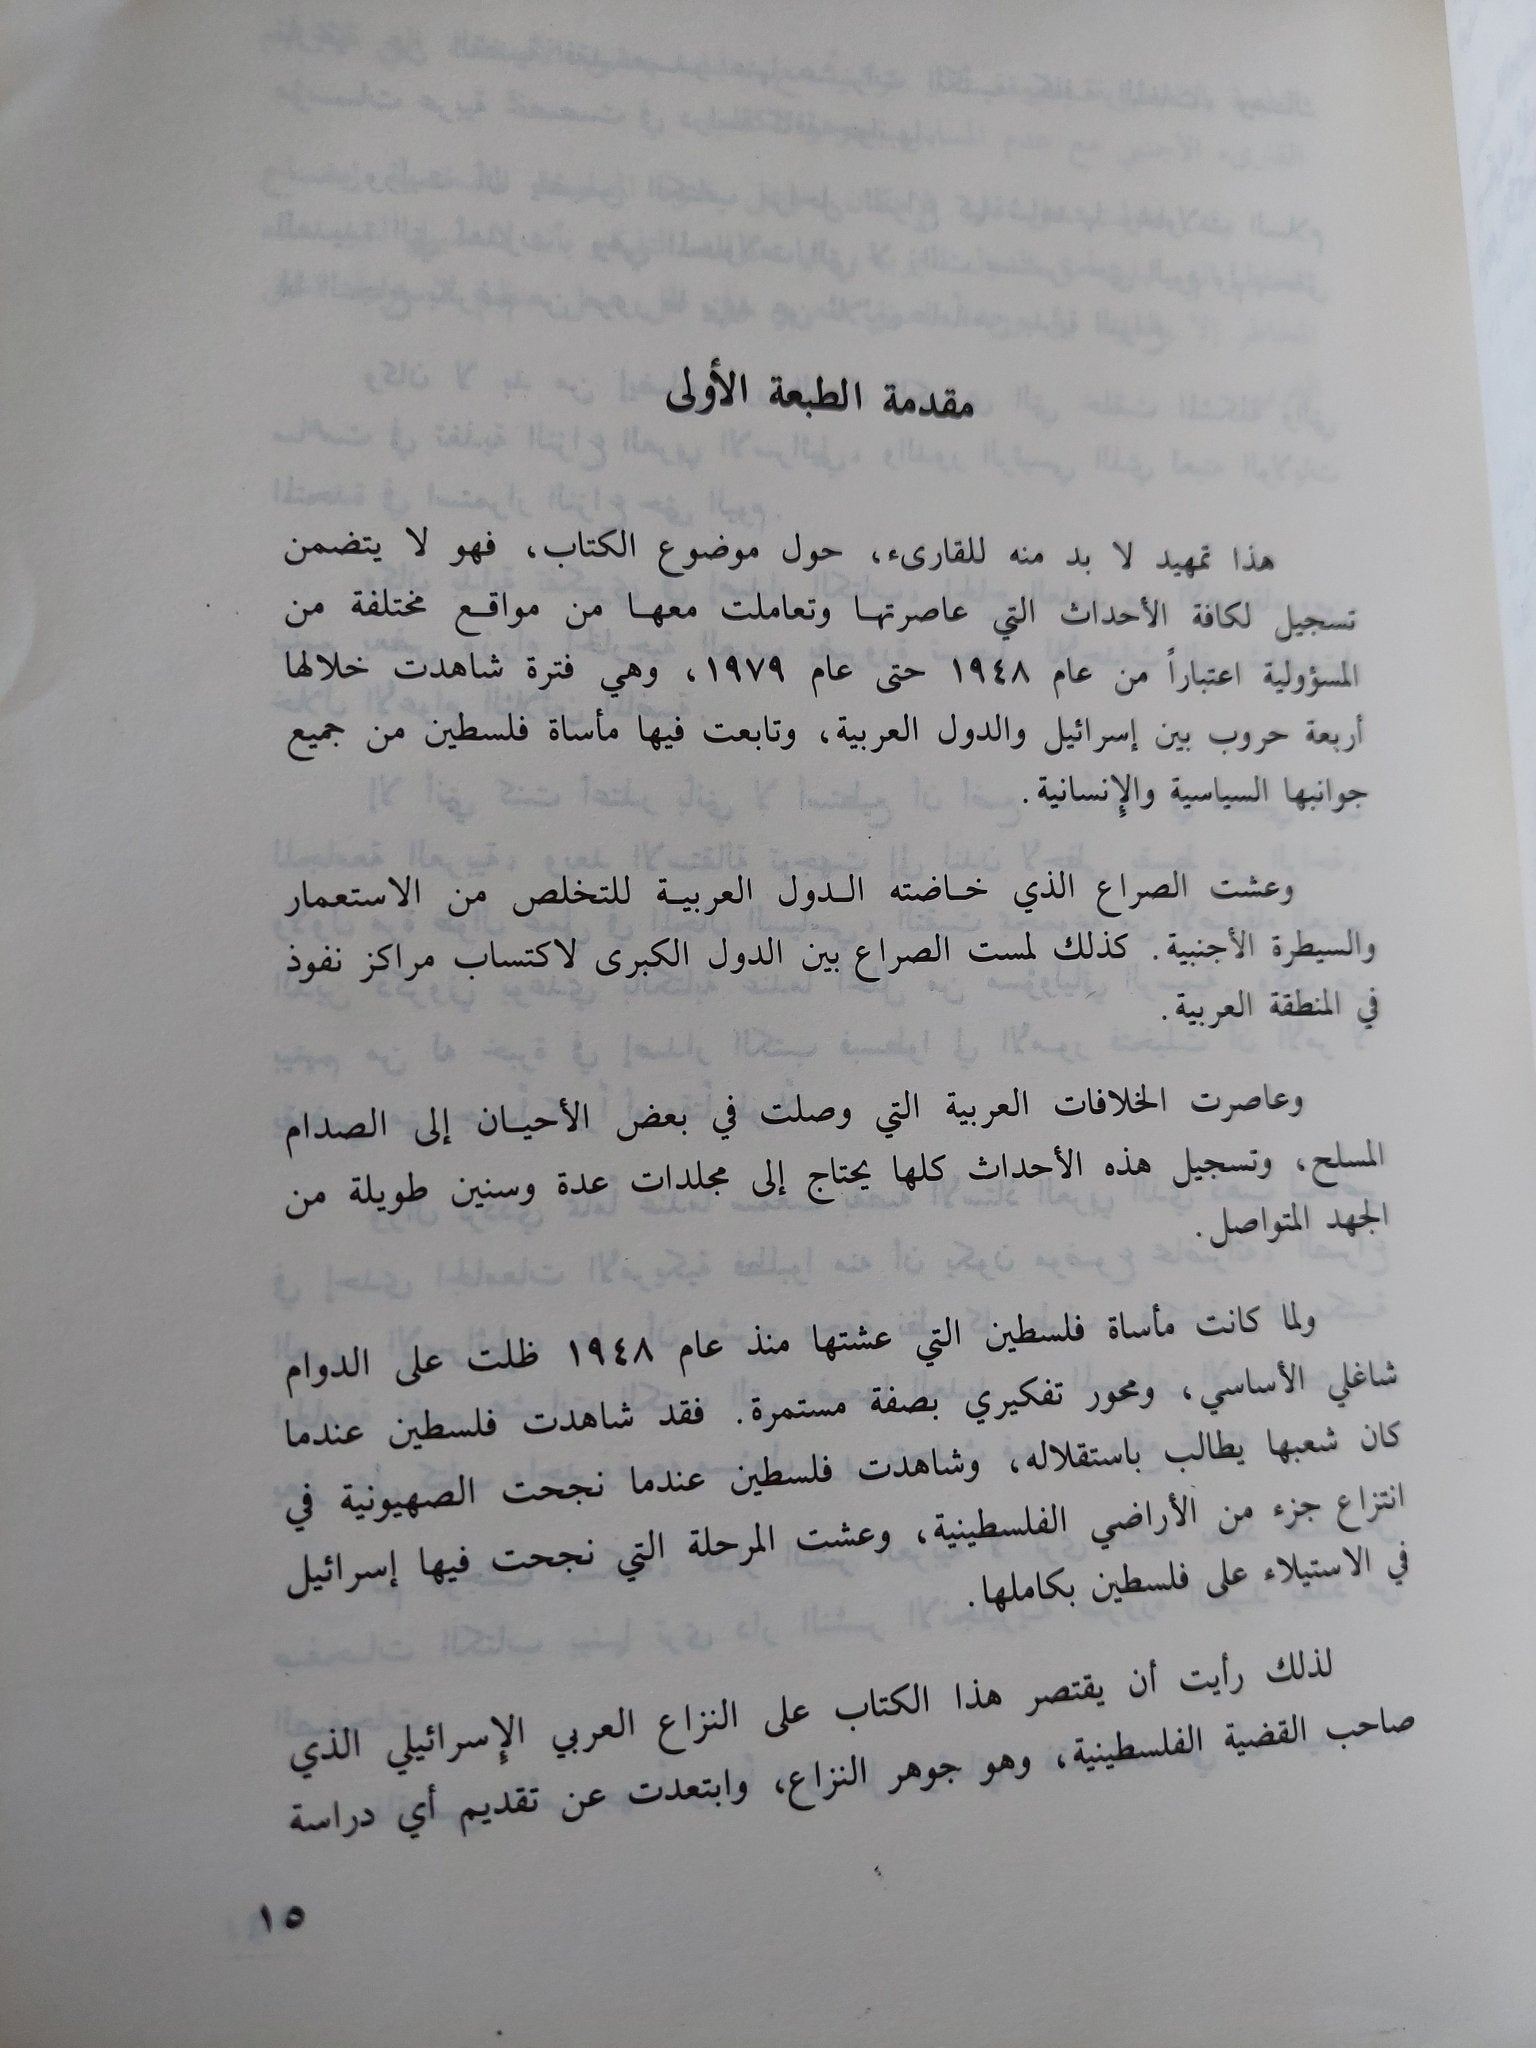 مقدمة الطبعة الأولى
هذا تمهيد لا بد منه للقارىء، حول موضوع الكتاب، فهو لا يتضمن
تسجيل لكافة الأحداث التي عاصرتها وتعاملت معها من مواقع مختلفة من
المسؤولية اعتباراً من عام ١٩٤٨ حتى عام ١٩٧٩، وهي فترة شاهدت خلالها
أربعة حروب بين إسرائيل والدول العربية، وتابعت فيها مأساة فلسطين من جميع
جوانبها السياسية والإنسانية.
وعشت الصراع الذي خاضته الدول العربية للتخلص من الاستعمار
والسيطرة الأجنبية. كذلك لمست الصراع بين الدول الكبرى لاكتساب مراكز نفوذ
في المنطقة العربية.
وعاصرت الخلافات العربية التي وصلت في بعض الأحيان إلى الصدام
المسلح، وتسجيل هذه الأحداث كلها يحتاج إلى مجلدات عدة وسنين طويلة من
الجهد المتواصل.
ولما كانت مأساة فلسطين التي عشتها منذ عام ١٩٤٨ ظلت على الدوام
شاغلي الأساسي، ومحور تفكيري بصفة مستمرة. فقد شاهدت فلسطين عندما
كان شعبها يطالب باستقلاله، وشاهدت فلسطين عندما نجحت الصهيونية في
انتزاع جزء من الأراضي الفلسطينية، وعشت المرحلة التي نجحت فيها إسرائيل
في الاستيلاء على فلسطين بكاملها.
لذلك رأيت أن يقتصر هذا الكتاب على النزاع العربي الإسرائيلي الذي
صاحب القضية الفلسطينية، وهو جوهر النزاع، وابتعدت عن تقديم أي دراسة
١٥